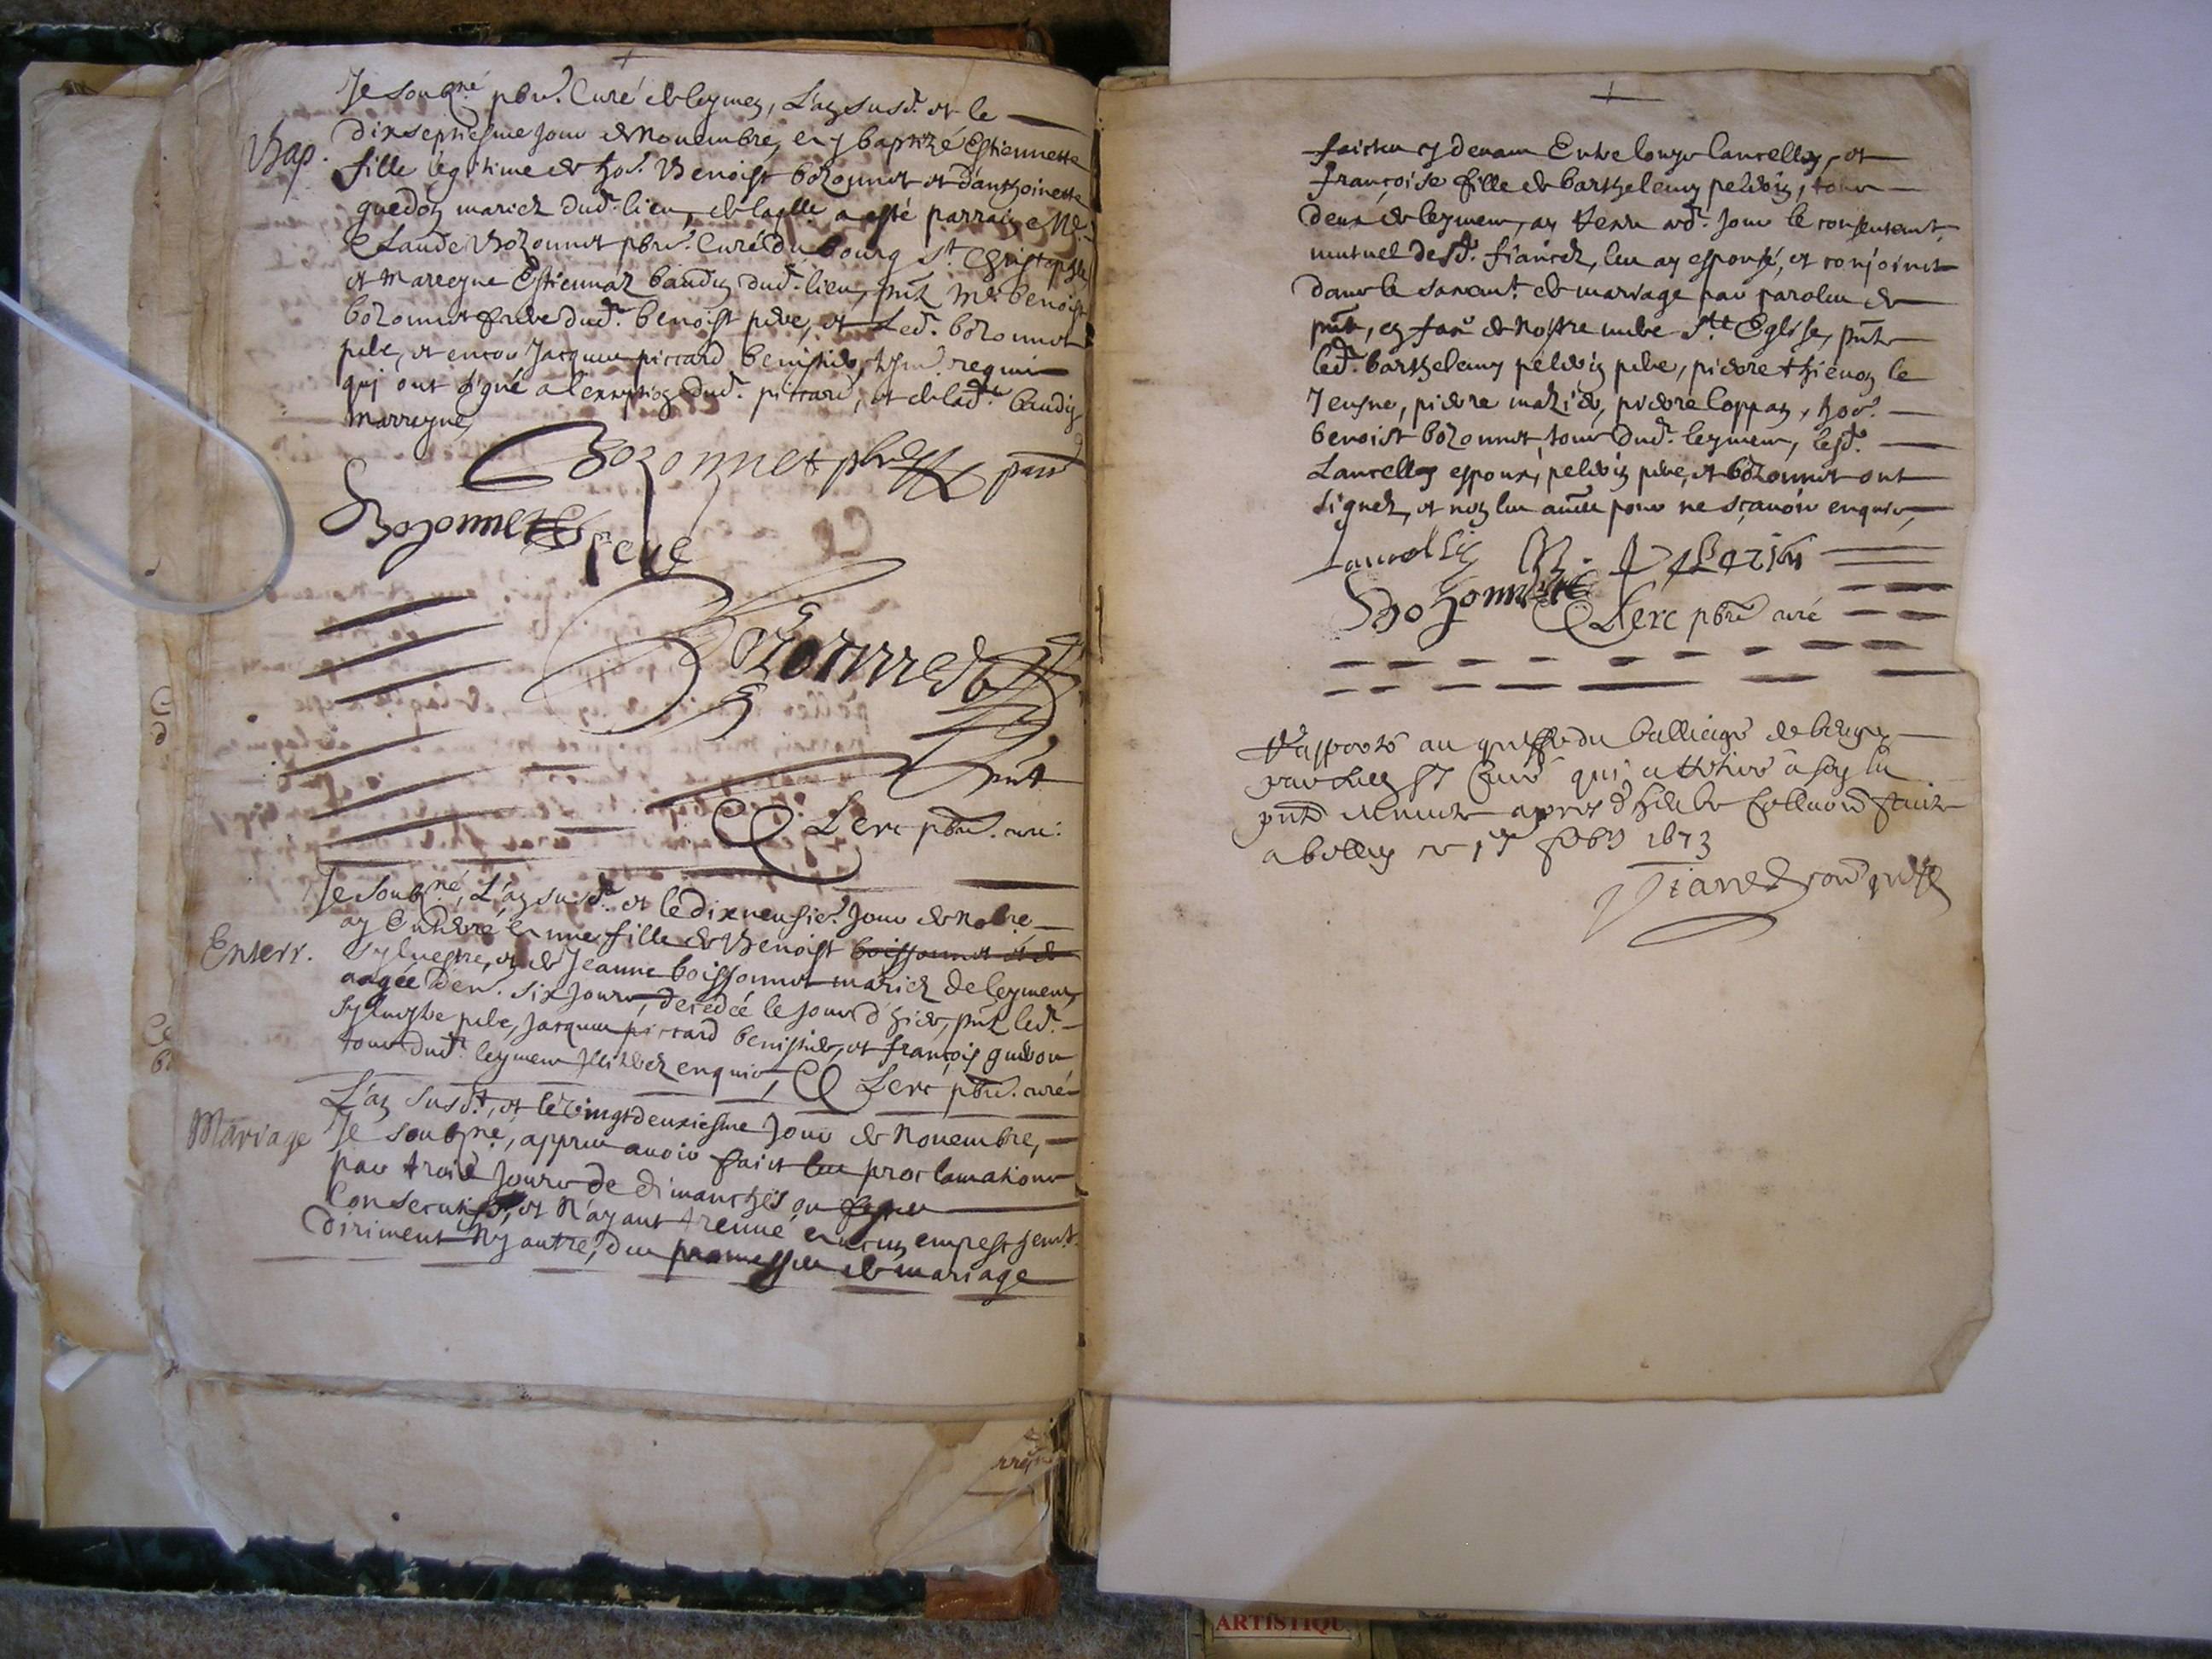 Je soubz.né pbre. Curé de leymen, L'an susd.t et le
Bap.
dixseptiesme Jour de Nouembre, ay baptizé Estiennette
fille légitime de hon. Benoist bozonnet et d'anthoinette
guedon mariez dud. lieu, de laqlle a esté parrain M.e
Claude Bozonnet pbre. Curé du bourg St. Christophle
et Mareyne Estiennaz baudin dud. lieu, pnt M.e benoist
bozonnet frere dud. benoist pere, et Led. bozonnet
pere, et encor Jacques piccard requis
qui ont signé a l'exception dud. piccard, et de lad.te baudin
marreyne,
Bozonnet pbre parr
Bozonnet pere
Bozonnet
pnt
C Lerc pbre. curé.
Je soubz.né, L'an susd.t et le dixneufie. Jour de No.bre,
Enterr.
ay Enterré fille de Benoist boissonnet et de
syluestre, et de Jeanne boissonnet mariez de leymens,
aagée d'en. six Jours, decedée le jour d'hier, pnt led.
syluestre pere, Jacques piccard et françois guedon
tous dud. leymens Illiterez enquis, C Lerc pbre. curé
L'an susd.t, et le vingtdeuxiesme Jour de Nouembre,
Mariage
Je soubz.né, appres auoir faict les proclamations
par trois Jours de dimanches ou festes
Consecutifs, et N'ayant treuué aucun empeschem.t
diriment Ny autre, des promesses de mariage
faictes cy deuant Entre lancellon, et
françoise fille de barthelemy pelerin, tous
deux de leymens, ay led. Jour le consentem.t
mutuel desd. fiancez, les ay espousé, et conjoinct
dans le sacrem.t de mariage par paroles de
pnt, en face de Nostre mere S.te Eglise, pnts
led. barthelemy pelerin pere, pierre thiénon le
Jeusne, pierre maziér, pierre loppan, hon.
benoist bozonnet tous dud. leymens, lesd.
Lancellon espoux, pelerin pere, et bozonnet ont
signez, et non les aultres pour ne sçauoir enquis,
Lancellon B. Pelerin
Bozonnet C Lerc pbre curé
Rapporté au greffe du balliage de bugey
par led. S.r Curé qui a retiré a soy la
pnte minute apres deue collation faicte
a belley ce 1673